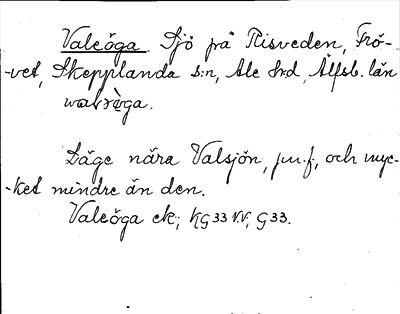 Valeöga. Sjö på Risveden, Frö-
-vet, Skepplanda s:n, Ale hrd, Älfsb. län
Läge nära Valsjön, jm.f, och myc-
-ket mindre än den.
Valeöga ek; KG33 N.V, G33.